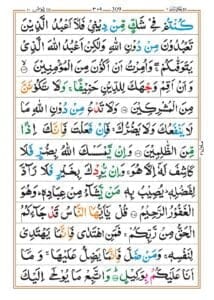 كُنْتُمْ فِيْ شَكٍّ مِّنْ دِيْنِيْ فَلَآ اَعْبُدُ الَّذِيْنَ
تَعْبُدُوْنَ مِنْ دُوْنِ اللّٰهِ وَلٰكِنْ اَعْبُدُ اللّٰهَ الَّذِيْ
يَتَوَفّٰىكُمْ ۖ وَاُمِرْتُ اَنْ اَكُوْنَ مِنَ الْمُؤْمِنِيْنَ
وَاَنْ اَقِمْ وَجْهَكَ لِلدِّيْنِ حَنِيْفًا ۚ وَلَا تَكُوْنَنَّ
مِنَ الْمُشْرِكِيْنَ وَلَا تَدْعُ مِنْ دُوْنِ اللّٰهِ مَا
لَا يَنْفَعُكَ وَلَا يَضُرُّكَ ۚ فَاِنْ فَعَلْتَ فَاِنَّكَ اِذًا
مِّنَ الظّٰلِمِيْنَ وَاِنْ يَّمْسَسْكَ اللّٰهُ بِضُرٍّ فَلَا
كَاشِفَ لَهٗٓ اِلَّا هُوَ ۚ وَاِنْ يُّرِدْكَ بِخَيْرٍ فَلَا رَآدَّ
لِفَضْلِهٖ ۗ يُصِيْبُ بِهٖ مَنْ يَّشَآءُ مِنْ عِبَادِهٖ ۗ وَهُوَ
الْغَفُوْرُ الرَّحِيْمُ قُلْ يٰٓاَيُّهَا النَّاسُ قَدْ جَآءَكُمُ
الْحَقُّ مِنْ رَّبِّكُمْ ۚ فَمَنِ اهْتَدٰى فَاِنَّمَا يَهْتَدِيْ
لِنَفْسِهٖ ۚ وَمَنْ ضَلَّ فَاِنَّمَا يَضِلُّ عَلَيْهَا ۚ وَمَآ
اَنَا عَلَيْكُمْ بِوَكِيْلٍ وَاتَّبِعْ مَا يُوْحٰٓى اِلَيْكَ